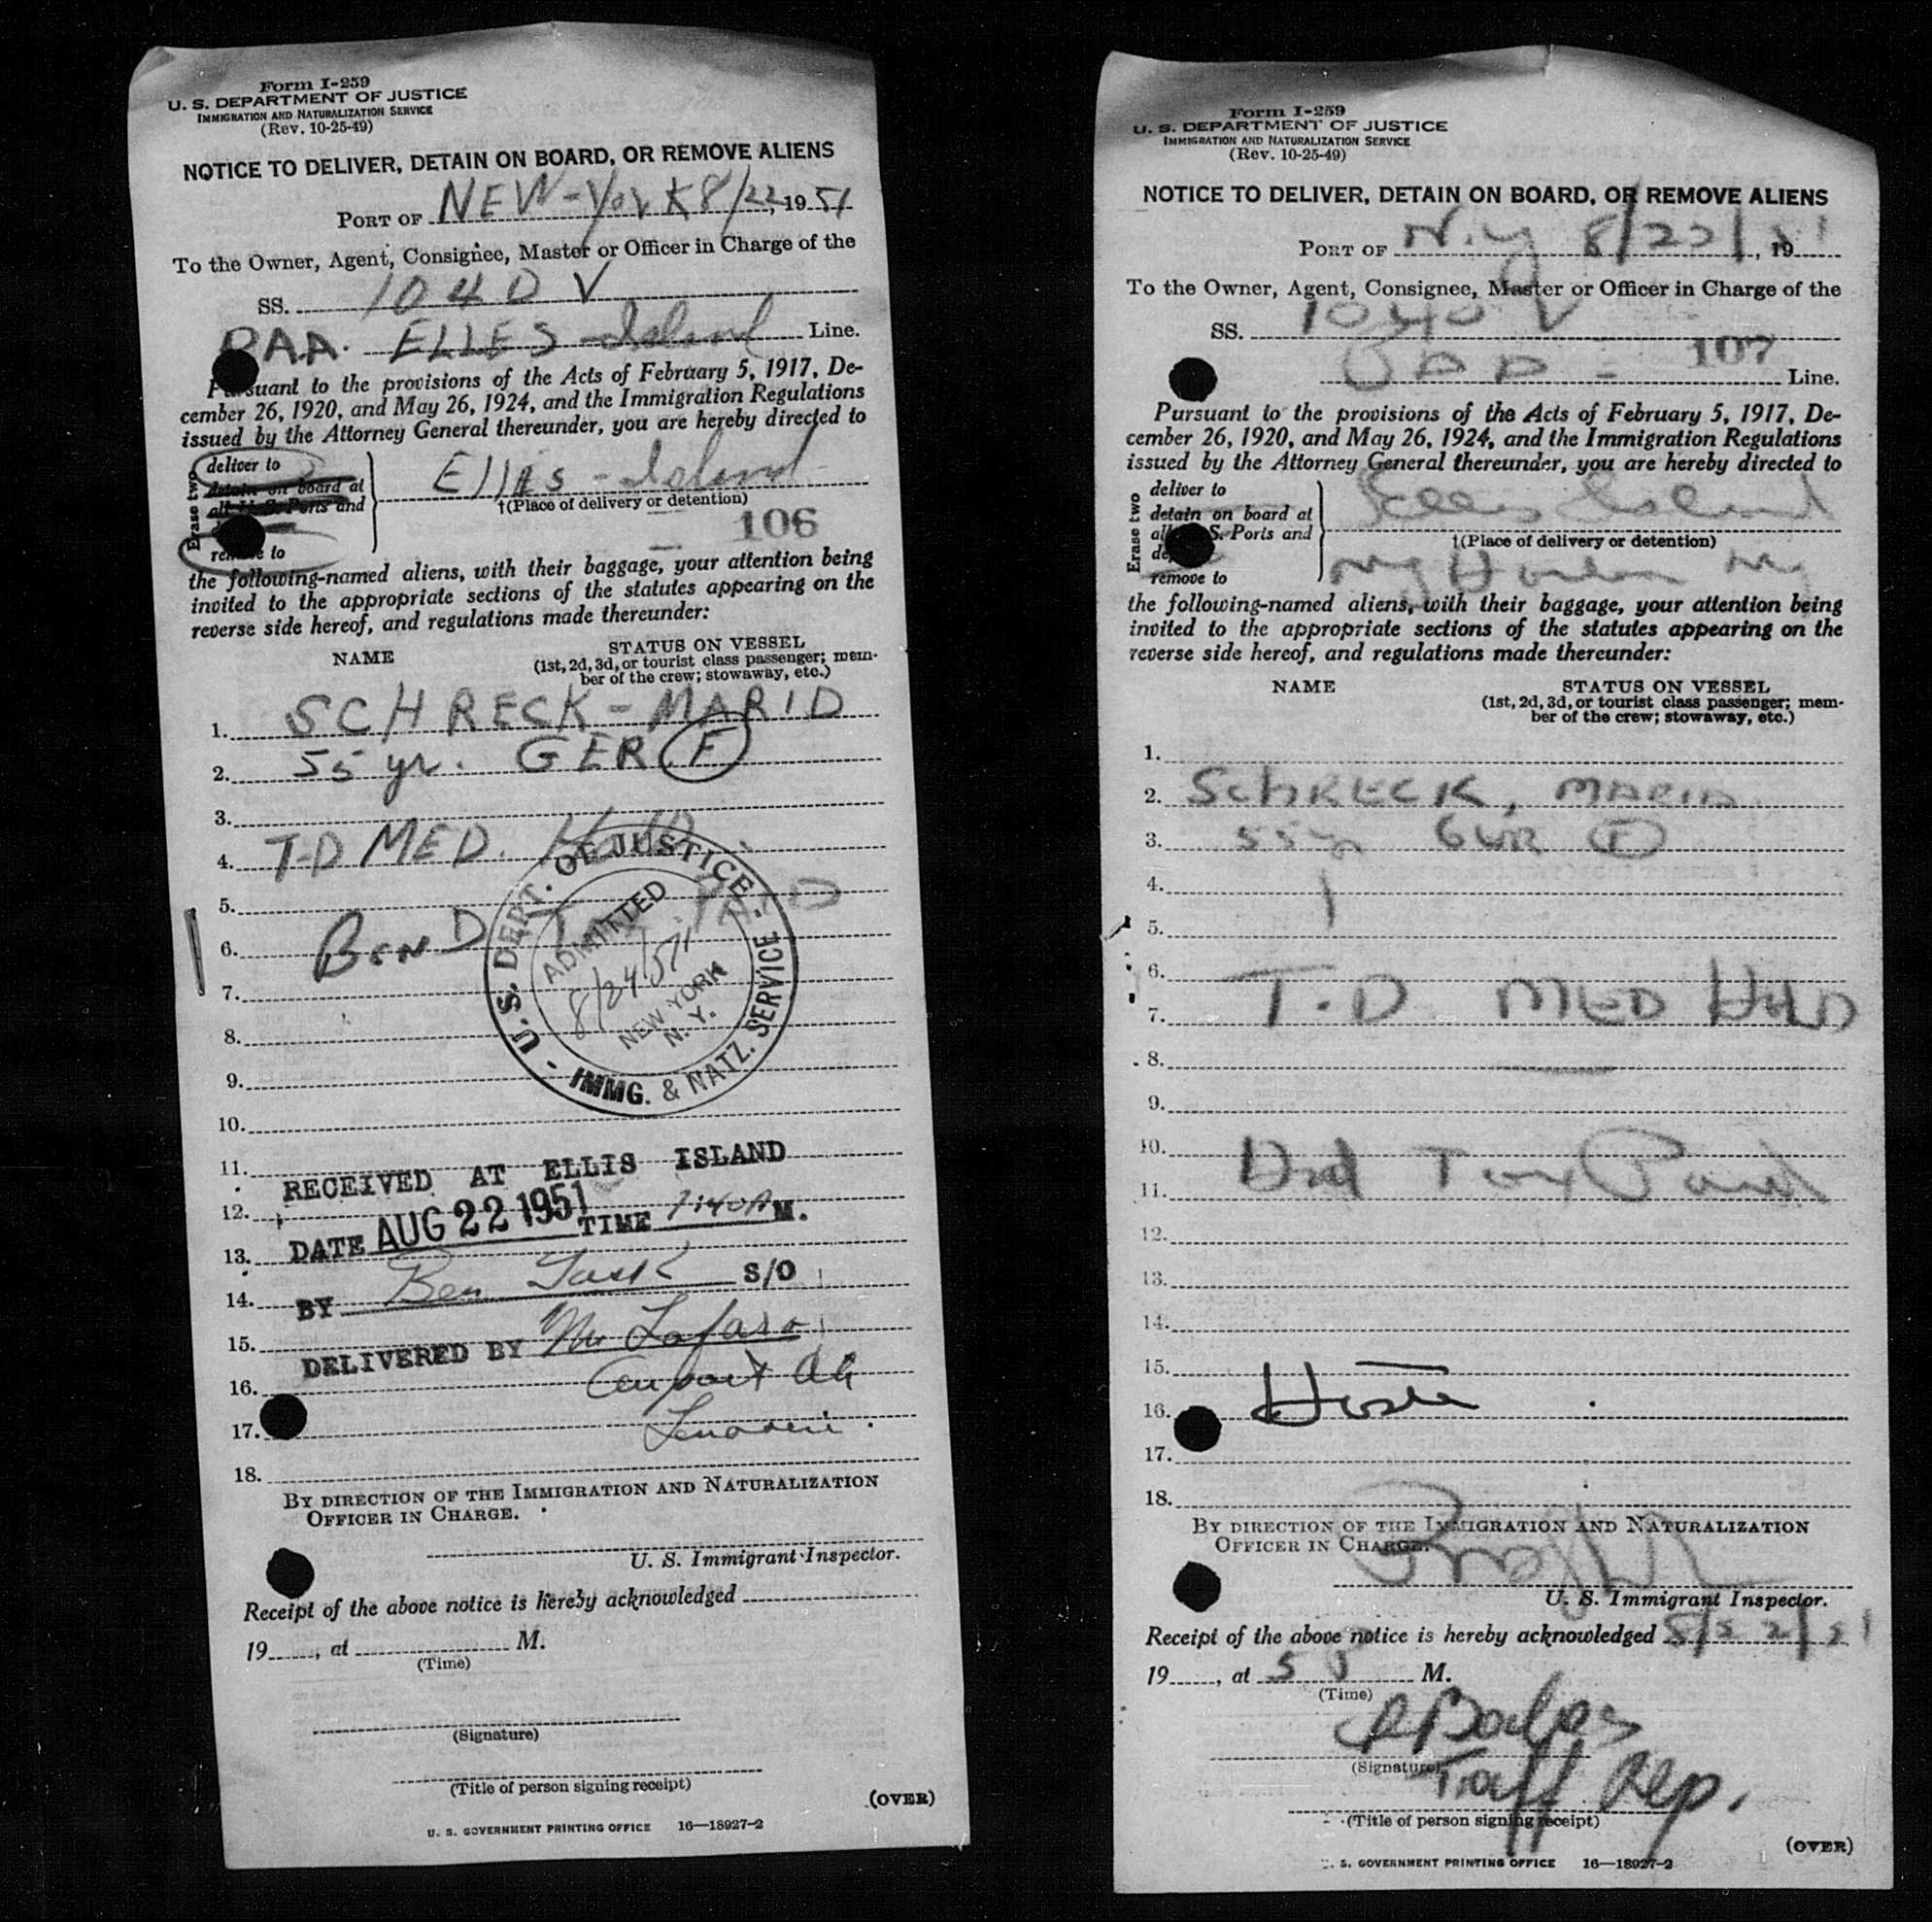 Form I-259
U. S. DEPARTMENT OF JUSTICE
IMMIGRATION AND NATURALIZATION SERVICE
(Rev. 10-25-49)
NOTICE TO DELIVER, DETAIN ON BOARD, OR REMOVE ALIENS
PORT OF NEW-York 8/22, 1951
To the Owner, Agent, Consignee, Master or Officer in Charge of the
SS. 104 D V
PAA. ELLES-Island Line.
Pursuant to the provisions of the Acts of February 5, 1917, De-
cember 26, 1920, and May 26, 1924, and the Immigration Regulations
issued by the Attorney General thereunder, you are hereby directed to
Erase two
deliver to
detain on board at
all U. S. Ports and
remove to
Ellis-Island
†(Place of delivery or detention)
106
the following-named aliens, with their baggage, your attention being
invited to the appropriate sections of the statutes appearing on the
reverse side hereof, and regulations made thereunder:
NAME
STATUS ON VESSEL
(1st, 2d, 3d, or tourist class passenger; mem-
ber of the crew; stowaway, etc.)
1. SCHRECK-MARIA
2. 55 yr. GER F
3.
4. T-D MED. Hold
5.
6. BenD Tax PAID
7.
8.
9.
10.
U.S. DEPT. OF JUSTICE
ADMITTED
8/24/51
NEW YORK
N. Y.
IMMG. & NATZ. SERVICE
11. RECEIVED AT ELLIS ISLAND
12. DATE AUG 22 1951 TIME 7:40 A M.
13.
14. BY Ben Task S/O
15. DELIVERED BY Mr Lafaso
16.
17.
18.
BY DIRECTION OF THE IMMIGRATION AND NATURALIZATION
OFFICER IN CHARGE.
U. S. Immigrant Inspector.
Receipt of the above notice is hereby acknowledged
19, at M.
(Time)
(Signature)
(Title of person signing receipt)
(OVER)
U. S. GOVERNMENT PRINTING OFFICE 16—18927-2
Form I-259
U. S. DEPARTMENT OF JUSTICE
IMMIGRATION AND NATURALIZATION SERVICE
(Rev. 10-25-49)
NOTICE TO DELIVER, DETAIN ON BOARD, OR REMOVE ALIENS
PORT OF N.Y 8/22/51, 19
To the Owner, Agent, Consignee, Master or Officer in Charge of the
SS. 1040 V
107
Line.
Pursuant to the provisions of the Acts of February 5, 1917, De-
cember 26, 1920, and May 26, 1924, and the Immigration Regulations
issued by the Attorney General thereunder, you are hereby directed to
Erase two
deliver to
detain on board at
all U. S. Ports and
remove to
Ellis Island
†(Place of delivery or detention)
NY Harbor NY
the following-named aliens, with their baggage, your attention being
invited to the appropriate sections of the statutes appearing on the
reverse side hereof, and regulations made thereunder:
NAME
STATUS ON VESSEL
(1st, 2d, 3d, or tourist class passenger; mem-
ber of the crew; stowaway, etc.)
1.
2. SCHRECK, MARIA
3. 55 yr GER F
4.
5.
6.
7. T.D MED Hold
8.
9.
10.
11. Hd Tax Paid
12.
13.
14.
15.
16.
17.
18.
BY DIRECTION OF THE IMMIGRATION AND NATURALIZATION
OFFICER IN CHARGE.
U. S. Immigrant Inspector.
Receipt of the above notice is hereby acknowledged 8/22/51
19, at 5 M.
(Time)
(Signature)
Traff Rep.
(Title of person signing receipt)
(OVER)
U. S. GOVERNMENT PRINTING OFFICE 16—18927-2